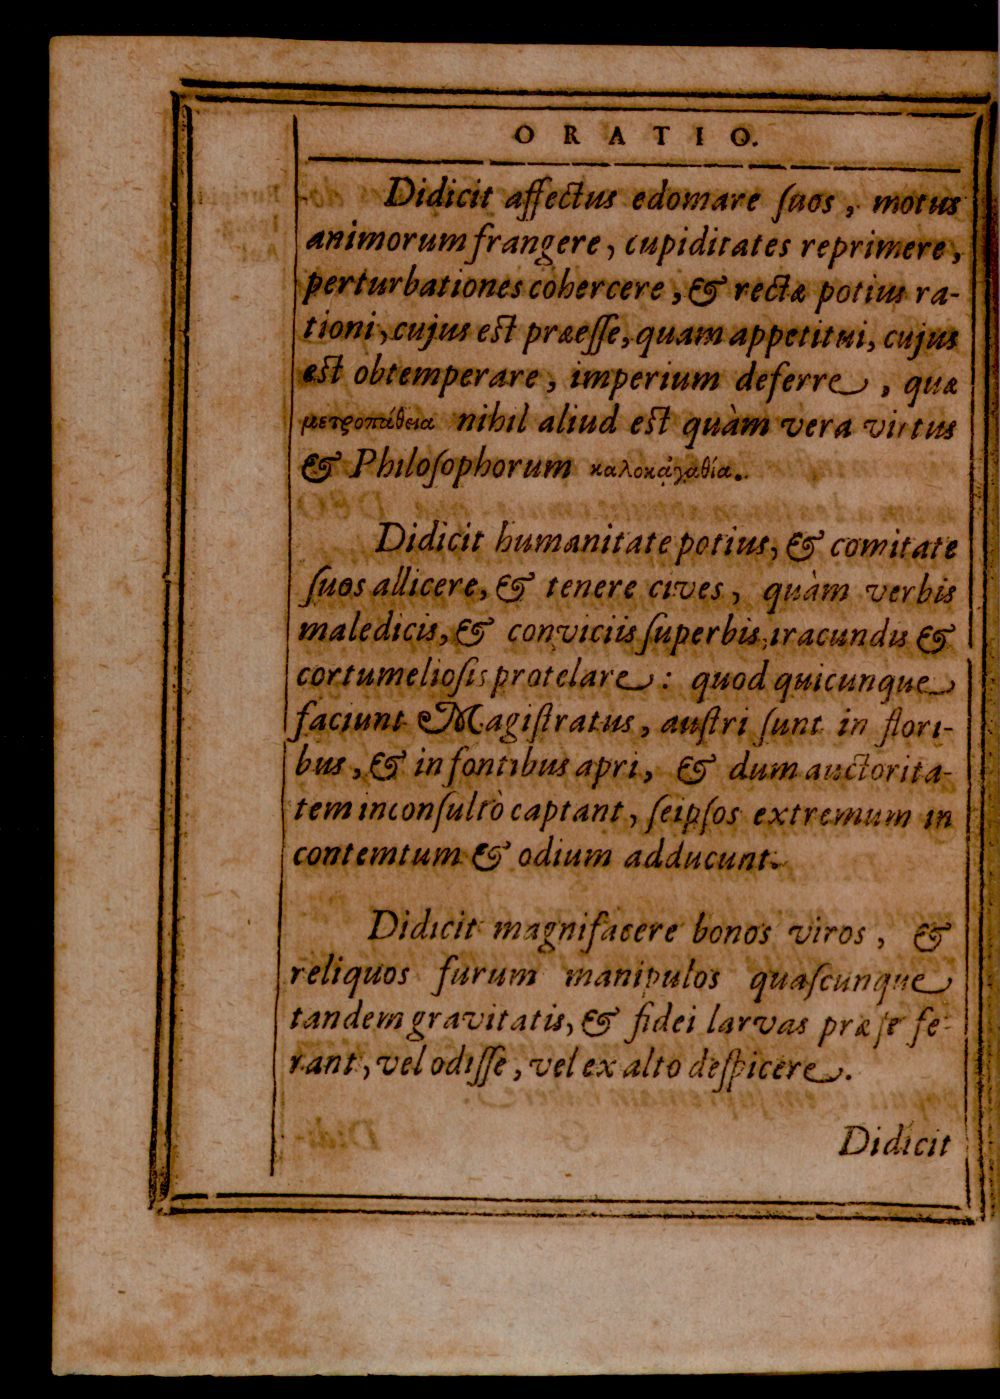 ORATIO.
Didicit affectus edomare ſuos, motus
animorum frangere, cupiditates reprimere,
perturbationes cohercere, & rectæ potius ra-
tioni, cujus est præesse, quam appetitui, cujus
est obtemperare, imperium deferre, quæ
μετριοπάθεια nihil aliud est quàm vera virtus
& Philoſophorum καλοκἀγαθία.
Didicit humanitate potius, & comitate
ſuos allicere, & tenere cives, quàm verbis
maledicis, & conviciis ſuperbis, iracundis &
cortumelioſis protelare: quod quicunque
faciunt Magiſtratus, auſtri ſunt in flori-
bus, & in fontibus apri, & dum auctorita-
tem inconſultò captant, ſeipſos extremum in
contemtum & odium adducunt.
Didicit magnifacere bonos viros, &
reliquos furum manipulos quaſcunque
tandem gravitatis, & fidei larvas præ ſe fe-
rant, vel odiſſe, vel ex alto deſpicere.
Didicit